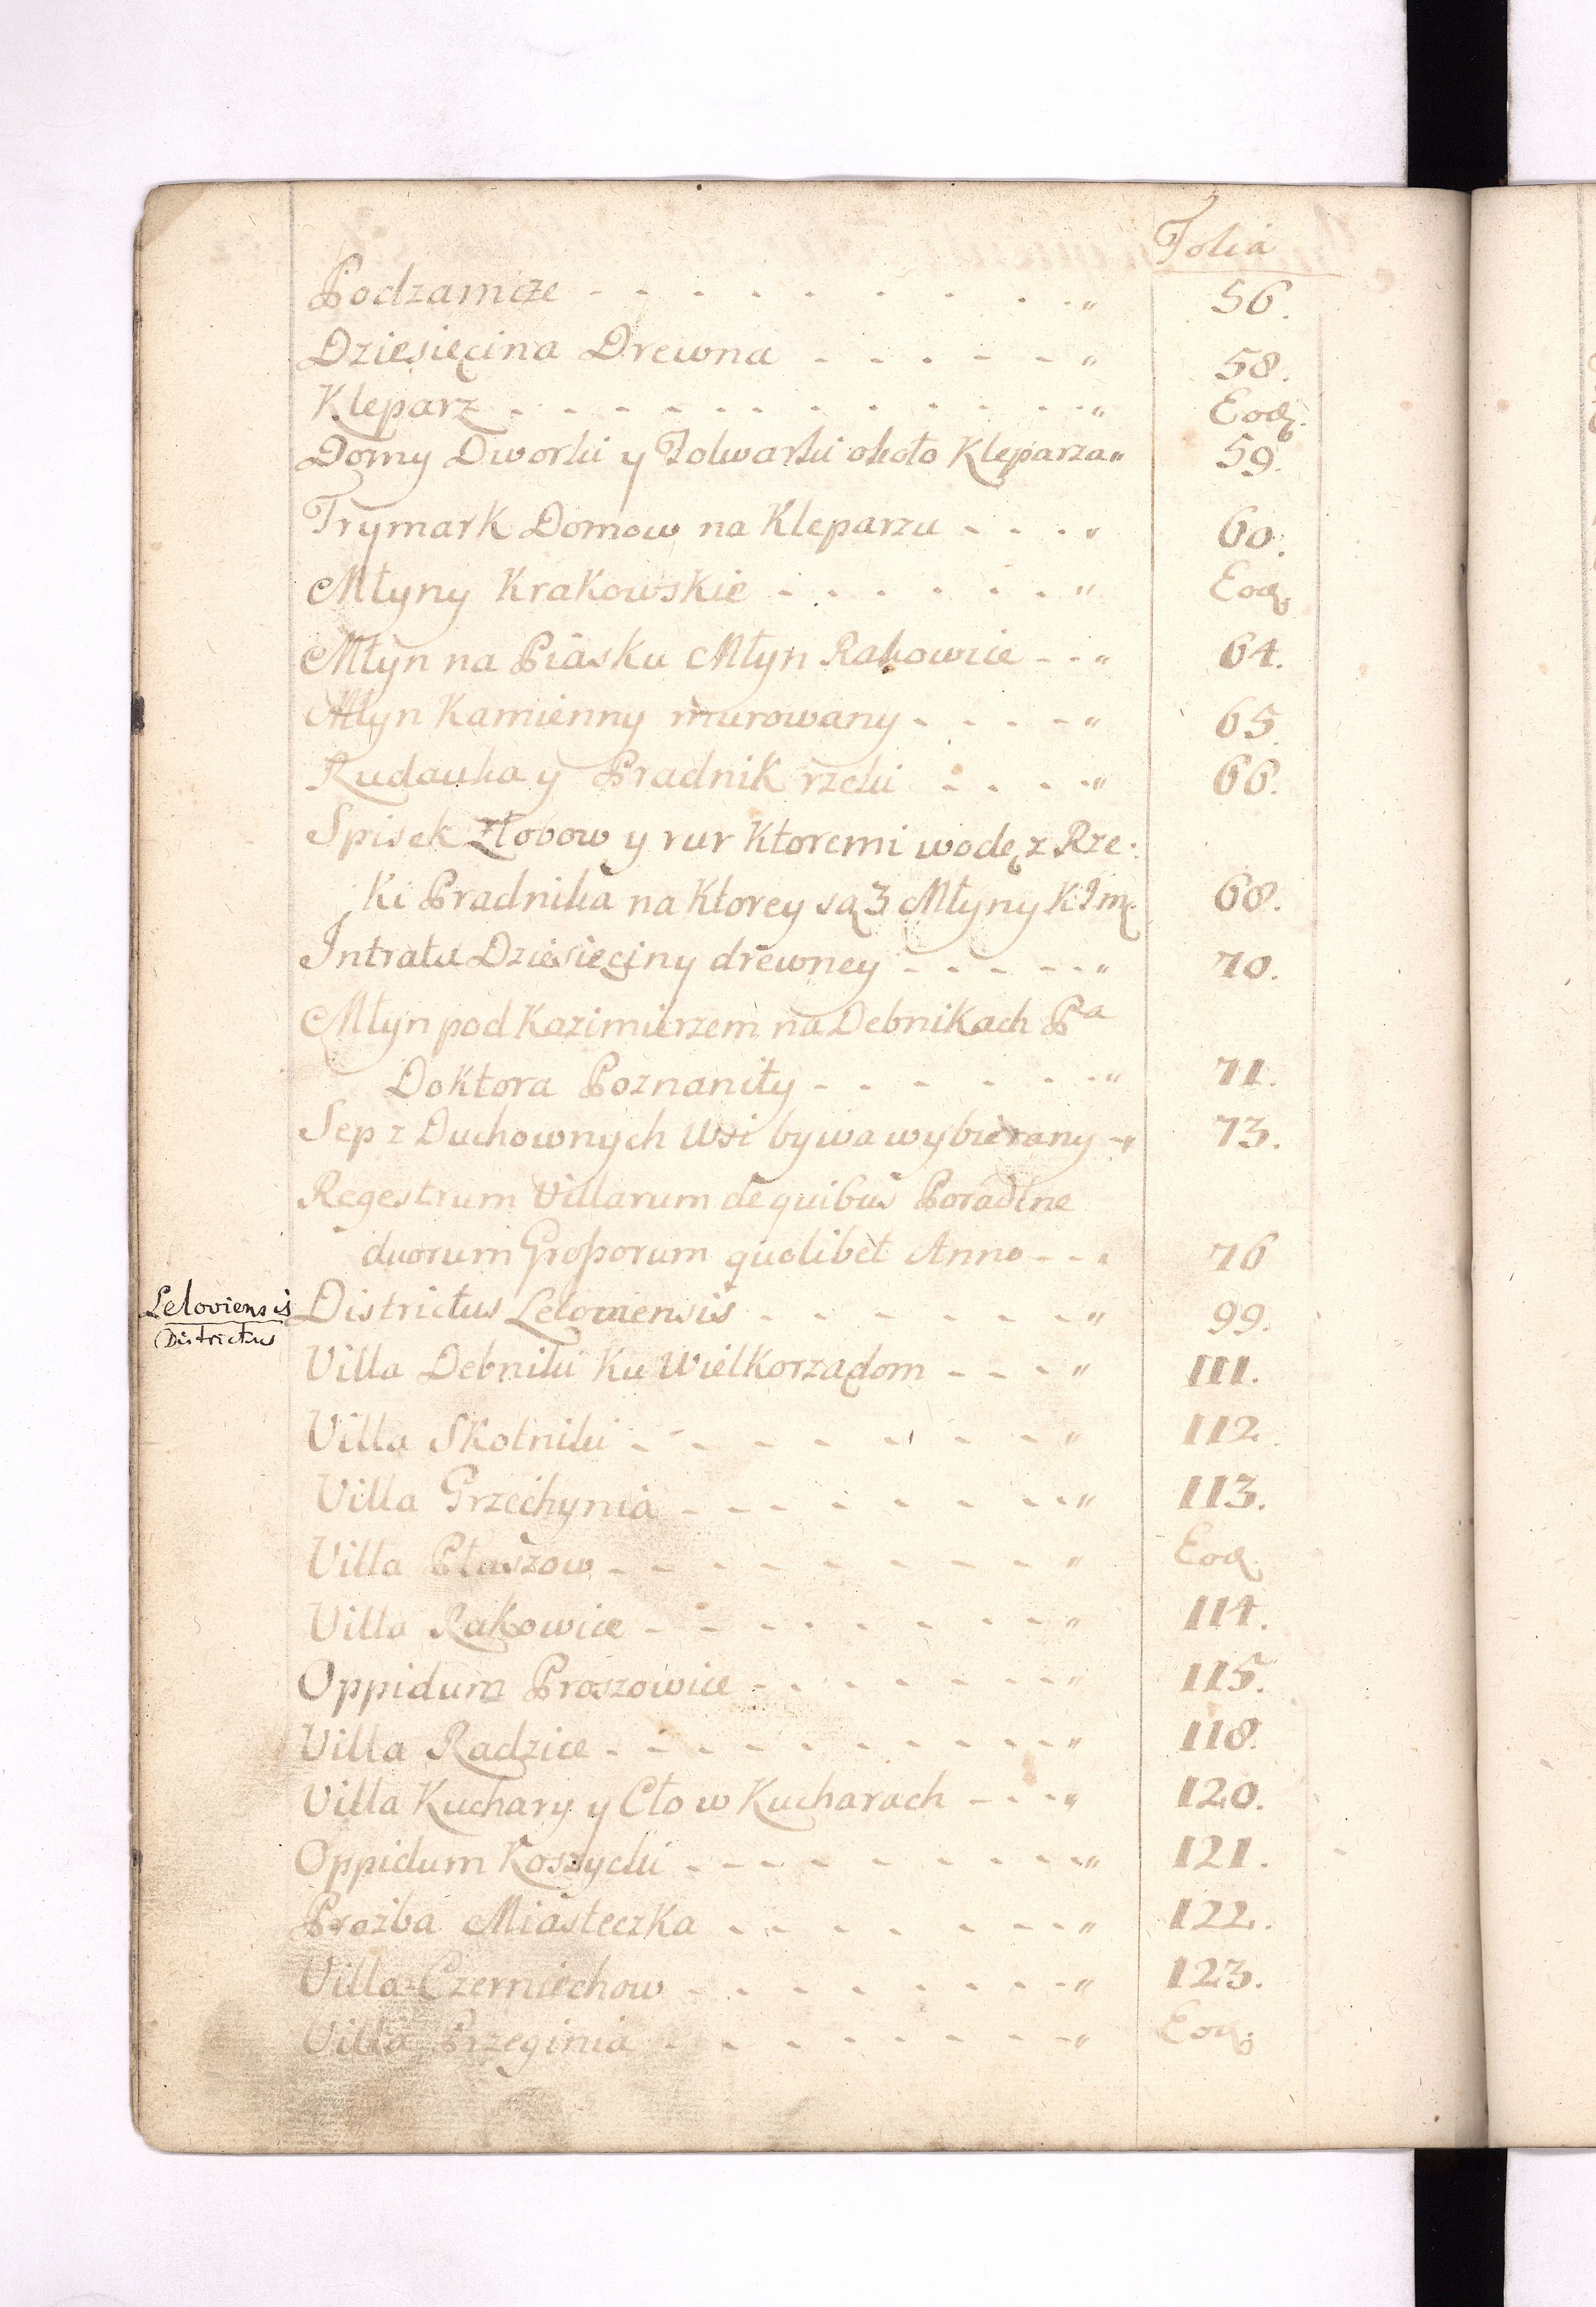 Folia
Podzamcze - - - - - - - - - - „ 56.
Dziesięcina Drewna - - - - - - „ 58.
Kleparz - - - - - - - - - - - - „ Eod.
Domy Dworki y Folwarki około Kleparza „ 59.
Frymark Domow na Kleparzu - - - „ 60.
Młyny Krakowskie - - - - - - „ Eod.
Młyn na Piasku Młyn Rakowice - - „ 64.
Młyn Kamienny murowany - - - - „ 65.
Rudawka y Pradnik rzeki - - - - „ 66.
Spisek Złobow y rur Ktoremi wodę z Rze:
ki Pradnika na Ktorey są 3 Młyny KJm. 68.
Intrata Dziesięciny drewney - - - - - „ 70.
Młyn pod Kazimierzem na Debnikach Pa
Doktora Poznanity - - - - - - „ 71.
Sep z Duchownych Wsi bywa wybierany - „ 73.
Regestrum Villarum de quibus Poradlne
duorum Großorum quolibet Anno - - - 76
Leloviensis
Districtus
Districtus Leloviensis - - - - - - - „ 99.
Villa Debniki Ku Wielkorządom - - - „ 111.
Villa Skotniki - - - - - - - - - „ 112.
Villa Grzechynia - - - - - - - - „ 113.
Villa Płaszow - - - - - - - - - „ Eod.
Villa Rakowice - - - - - - - - - „ 114.
Oppidum Proszowice - - - - - - - „ 115.
Villa Radzice - - - - - - - - - - „ 118.
Villa Kuchary y Cło w Kucharach - - - „ 120.
Oppidum Koszycki - - - - - - - - - „ 121.
Prozba Miasteczka - - - - - - - - „ 122.
Villa Czerniechow - - - - - - - - „ 123.
Villa Przeginia - - - - - - - - - „ Eod.